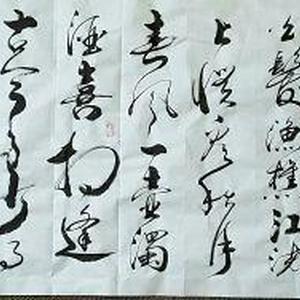 白髮漁樵江渚
上慣看秋月
春風一壺濁
酒喜相逢
古今多少事